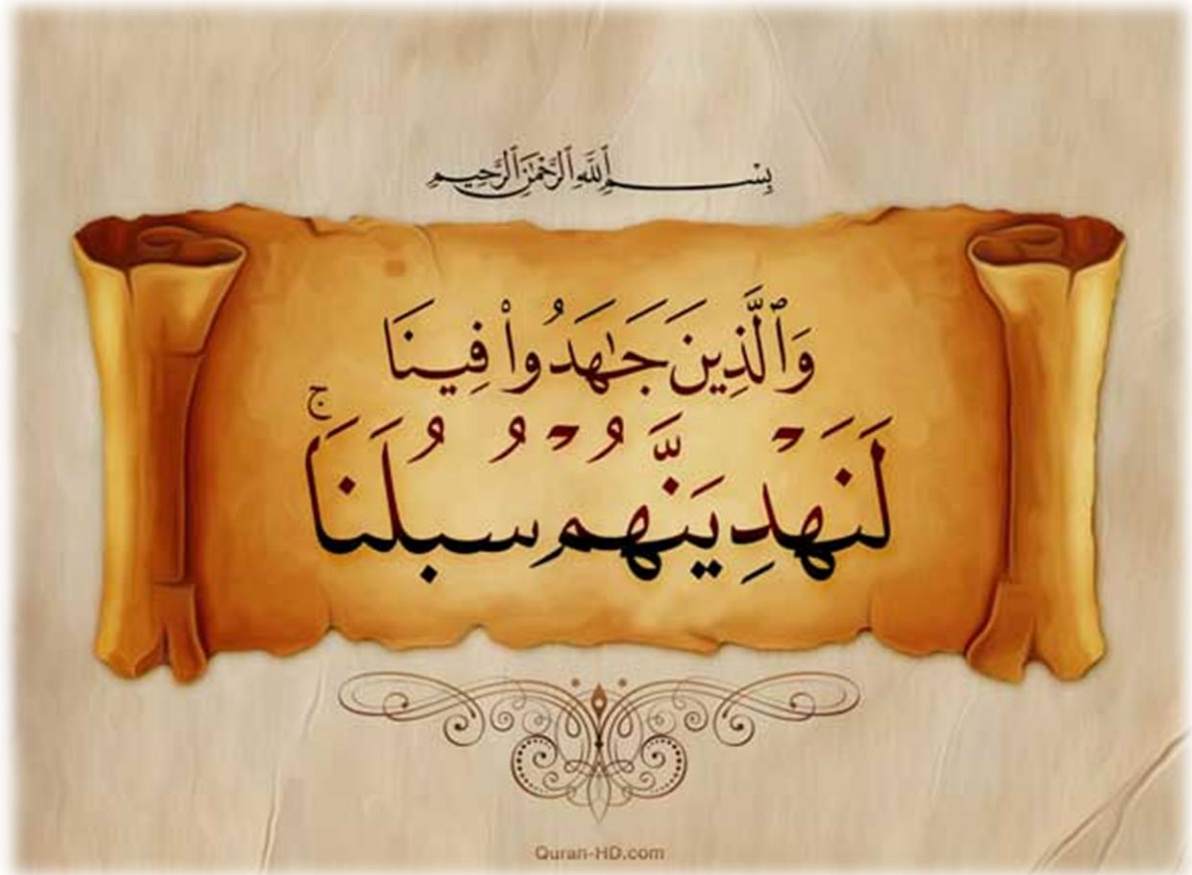 بِسْمِ ٱللَّهِ ٱلرَّحْمَٰنِ ٱلرَّحِيمِ
وَٱلَّذِينَ جَـٰهَدُوا۟ فِينَا
لَنَهْدِيَنَّهُمْ سُبُلَنَا ۚ
Quran-HD.com